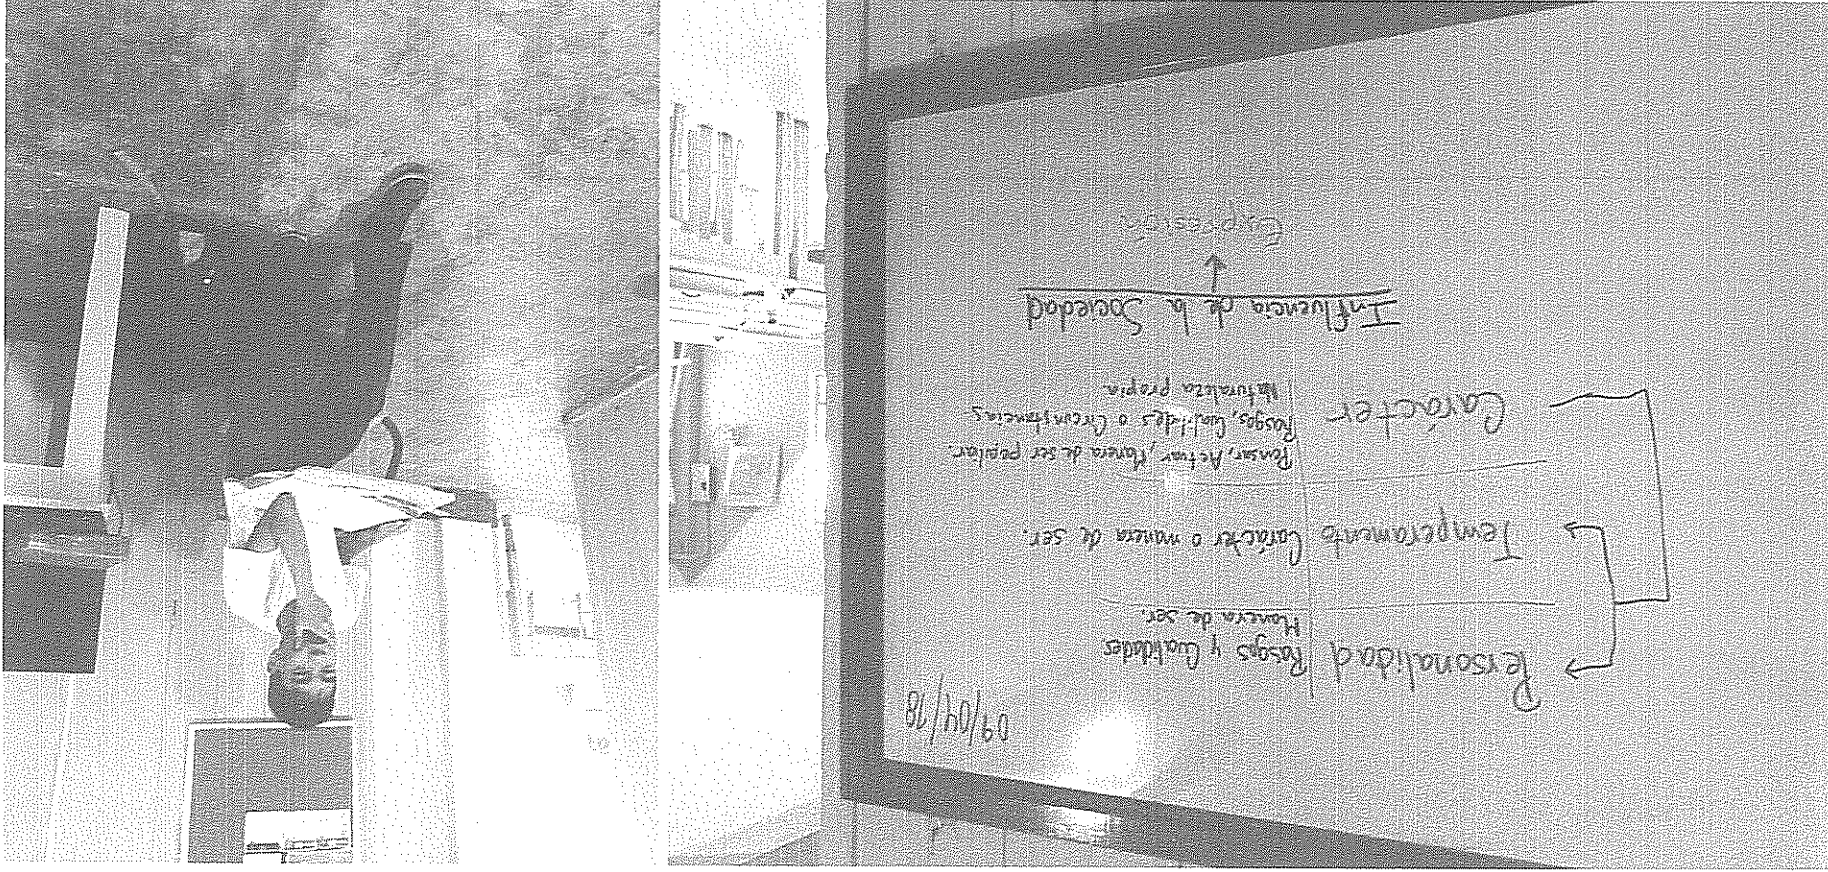 09/04/18
Personalidad
Rasgos y Cualidades
Manera de ser.
Temperamento
Carácter o manera de ser.
Carácter
Pensar, Actuar, Manera de ser peculiar.
Rasgos, Cualidades o Circunstancias
Naturaleza propia
Influencia de la Sociedad
Expresión